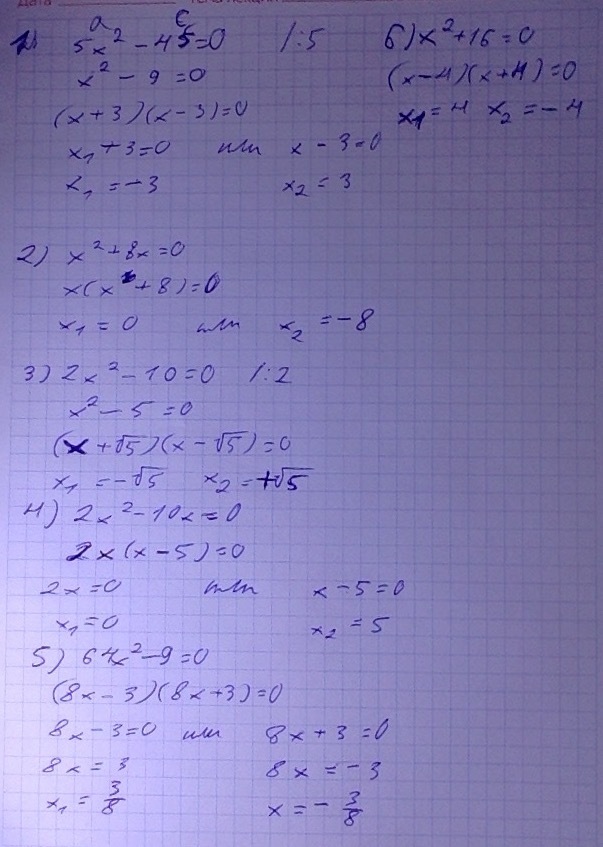 Дата
a c
1) 5x² - 45=0 /:5
x² - 9 =0
(x+3)(x-3)=0
x₁+3=0 или x - 3=0
x₁ = -3 x₂ = 3
6) x²+16=0
(x-4)(x+4)=0
x₁=4 x₂ = -4
2) x²+8x=0
x(x+8)=0
x₁ = 0 или x₂ = -8
3) 2x² - 10=0 /:2
x² - 5 =0
(x+√5)(x-√5)=0
x₁ = -√5 x₂ = +√5
4) 2x² - 10x=0
2x(x-5)=0
2x=0 или x-5=0
x₁=0 x₂ = 5
5) 64x²-9=0
(8x-3)(8x+3)=0
8x-3=0 или 8x+3=0
8x = 3 8x = -3
x₁ = 3/8 x = - 3/8